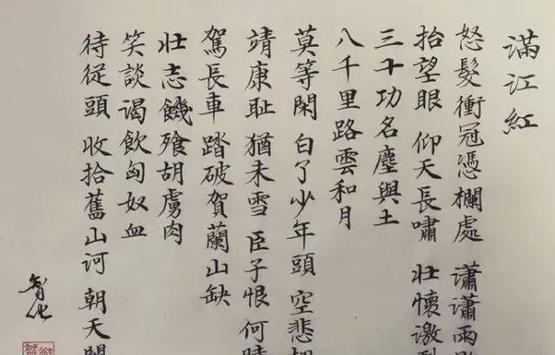 滿江紅
怒髮衝冠憑欄處 瀟瀟雨
抬望眼 仰天長嘯 壯懷激
三十功名塵與土
八千里路雲和月
莫等閑 白了少年頭 空悲
靖康耻 猶未雪 臣子恨 何
駕長車 踏破賀蘭山缺
壯志饑飱胡虜肉
笑談渴飲匈奴血
待從頭 收拾舊山河 朝天